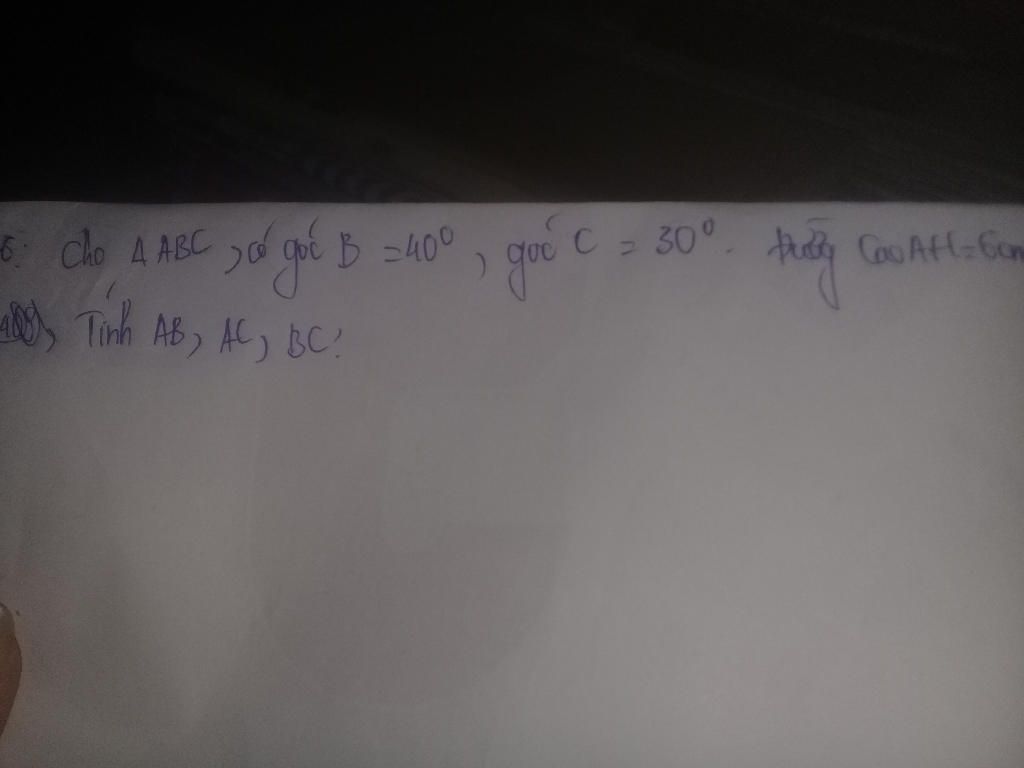 5: Cho ΔABC, có góc B = 40°, góc C = 30°. đường Cao AH = 6cm
Tính AB, AC, BC?